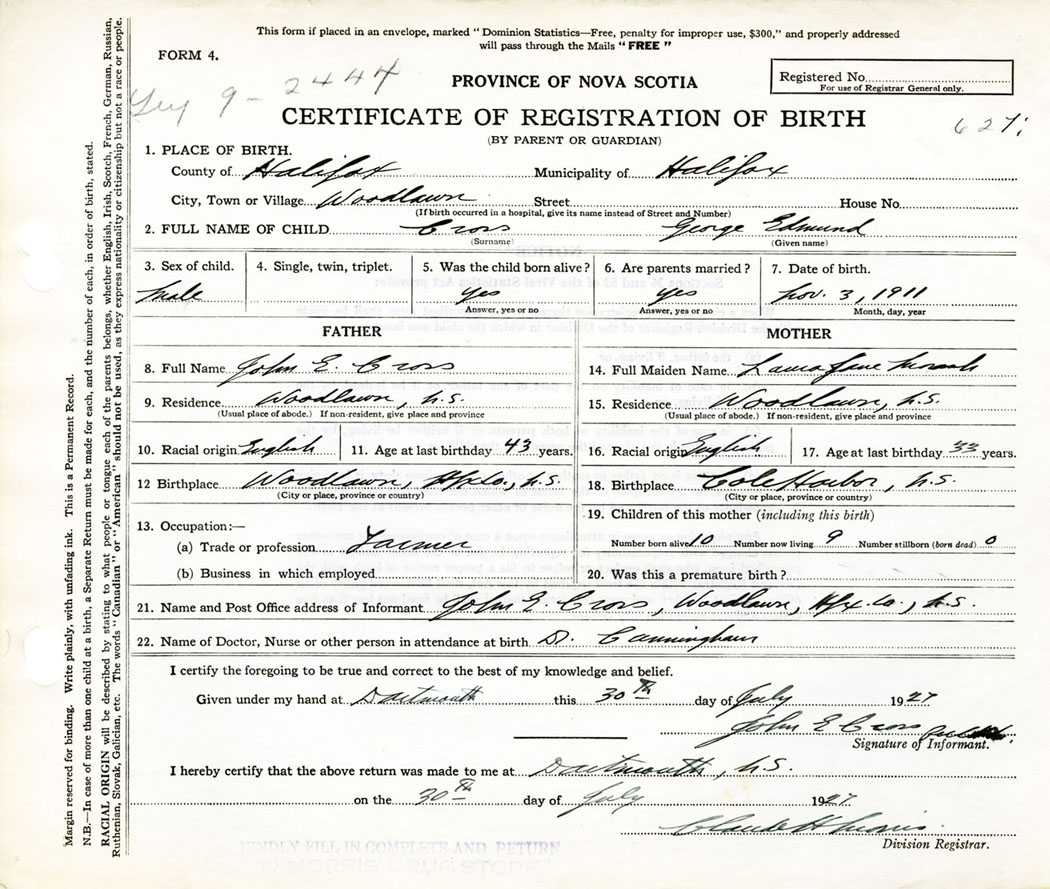 This form if placed in an envelope, marked "Dominion Statistics—Free, penalty for improper use, $300," and properly addressed
will pass through the Mails "FREE"
FORM 4.
9 - 2444
PROVINCE OF NOVA SCOTIA
Registered No.
For use of Registrar General only.
CERTIFICATE OF REGISTRATION OF BIRTH
(BY PARENT OR GUARDIAN)
627
1. PLACE OF BIRTH.
County of Halifax Municipality of Halifax
City, Town or Village Woodlawn Street House No.
(If birth occurred in a hospital, give its name instead of Street and Number)
2. FULL NAME OF CHILD Cross George Edmund
(Surname) (Given name)
3. Sex of child. 4. Single, twin, triplet. 5. Was the child born alive? 6. Are parents married? 7. Date of birth.
Male yes yes Nov. 3, 1911
Answer, yes or no Answer, yes or no Month, day, year
FATHER MOTHER
8. Full Name John E. Cross 14. Full Maiden Name Laura Jane
9. Residence Woodlawn, N.S. 15. Residence Woodlawn, N.S.
(Usual place of abode.) If non-resident, give place and province (Usual place of abode.) If non-resident, give place and province
10. Racial origin English 11. Age at last birthday 43 years. 16. Racial origin English 17. Age at last birthday 33 years.
12 Birthplace Woodlawn, Hfx Co., N.S. 18. Birthplace Cole Harbor, N.S.
(City or place, province or country) (City or place, province or country)
13. Occupation:— 19. Children of this mother (including this birth)
(a) Trade or profession Farmer Number born alive 10 Number now living 9 Number stillborn (born dead) 0
(b) Business in which employed 20. Was this a premature birth?
21. Name and Post Office address of Informant John E Cross, Woodlawn, Hfx. Co., N.S.
22. Name of Doctor, Nurse or other person in attendance at birth Dr. Cunningham
I certify the foregoing to be true and correct to the best of my knowledge and belief.
Given under my hand at Dartmouth this 30th day of July 1927
John E Cross
Signature of Informant.
I hereby certify that the above return was made to me at Dartmouth, N.S.
on the 30th day of July 1927.
Claude H Morris
Division Registrar.
KINDLY FILL IN COMPLETE AND RETURN
TO MORRIS DRUG STORE
Margin reserved for binding. Write plainly, with unfading ink. This is a Permanent Record.
N.B.—In case of more than one child at a birth, a Separate Return must be made for each, and the number of each, in order of birth, stated.
RACIAL ORIGIN will be described by stating to what people or tongue each of the parents belongs, whether English, Irish, Scotch, French, German, Russian,
Ruthenian, Slovak, Galician, etc. The words "Canadian" or "American" should not be used, as they express nationality or citizenship but not a race or people.